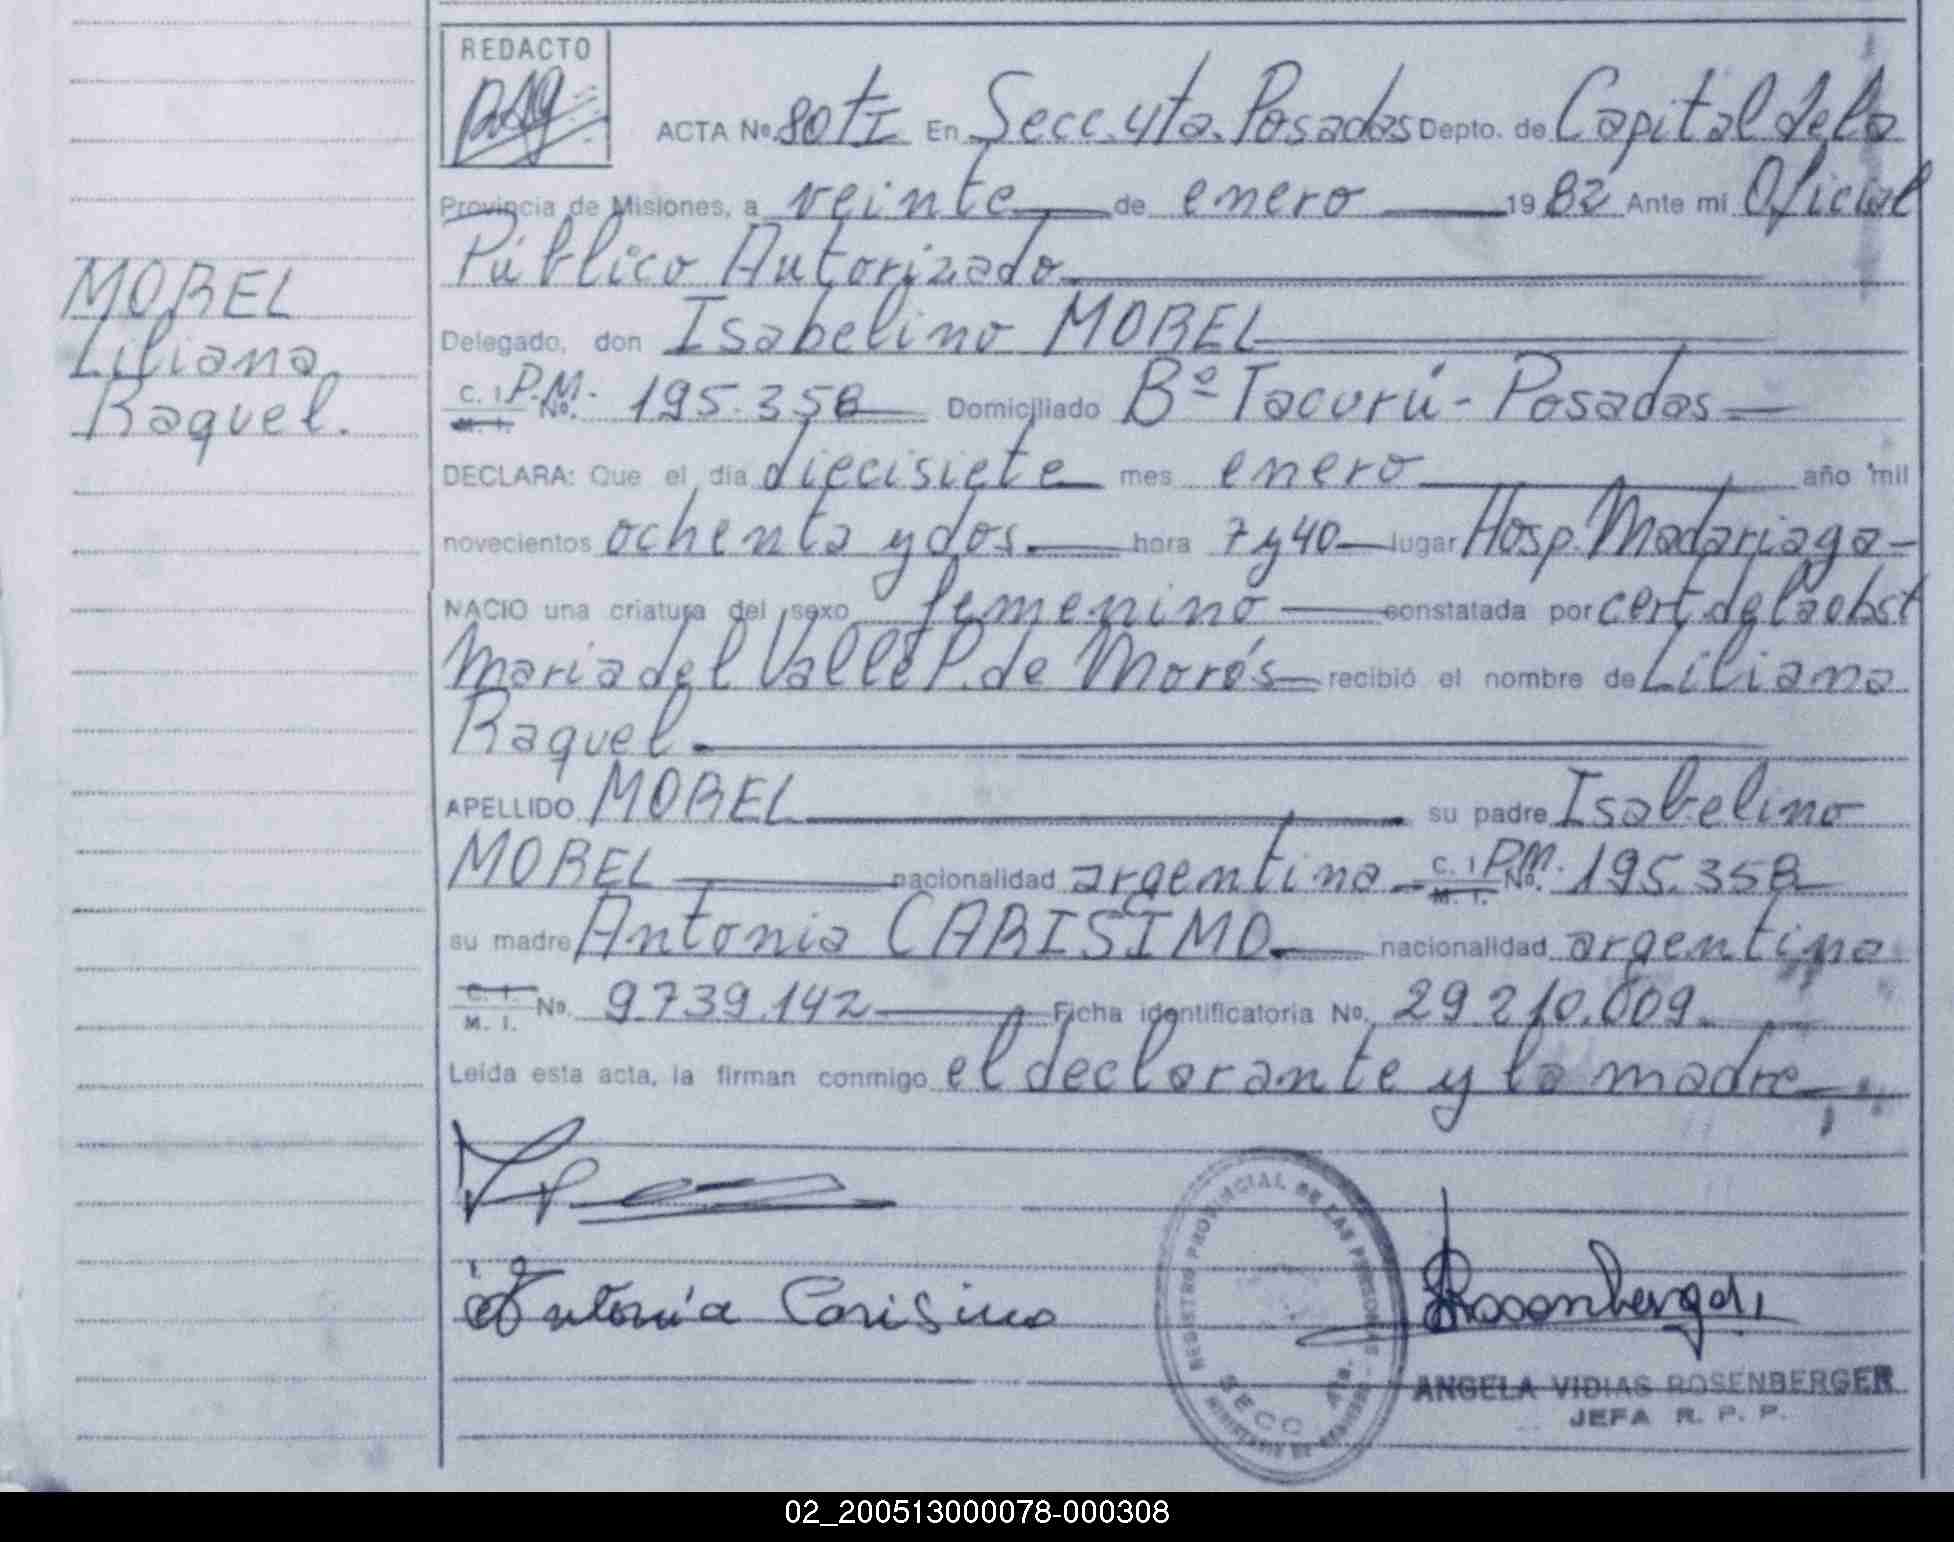 REDACTO
ACTA Nº 80 tI En Secc. 4ta. Posadas Depto. de Capital de la
Provincia de Misiones, a veinte de enero 1982 Ante mi Oficial
Público Autorizado
Delegado, don Isabelino MOREL
C. I. P.M. Nº. 195.358 Domiciliado Bº Tacurú - Posadas
M. I.
DECLARA: Que el día diecisiete mes enero año mil
novecientos ochenta y dos hora 7 y 40 lugar Hosp. Madariaga
NACIO una criatura del sexo femenino constatada por cert de la obst
Maria del Valle P. de Morés recibió el nombre de Liliana
Raquel
APELLIDO MOREL su padre Isabelino
MOREL nacionalidad argentina C. I. P.M. Nº. 195.358
M. I.
su madre Antonia CARISIMO nacionalidad argentina
C. I.
M. I. Nº. 9.739.142 Ficha identificatoria Nº. 29.210.009.
Leída esta acta, la firman conmigo el declarante y la madre
MOREL
Liliana
Raquel.
Antonia Carisimo
Rosenberger
REGISTRO PROVINCIAL DE LAS PERSONAS
SECC 4ta.
ANGELA VIDIAS ROSENBERGER
JEFA R. P. P.
02_200513000078-000308